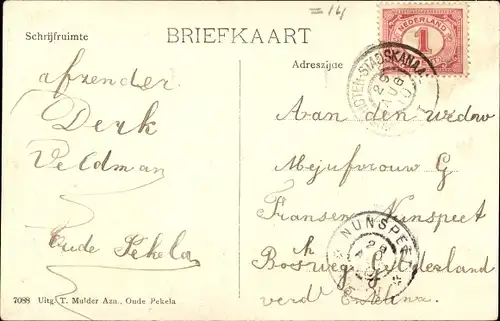 = 14
Schrijfruimte
BRIEFKAART
Adreszijde
NEDERLAND
1
STADSKANAAL
29
AUG
afzender
Derk
Veldman
Oude Pekela
Aan den
Mejufvrouw G
Fransen Nunspeet
Bosweg Gelderland
NUNSPEET
7088 Uitg. T. Mulder Azn., Oude Pekela